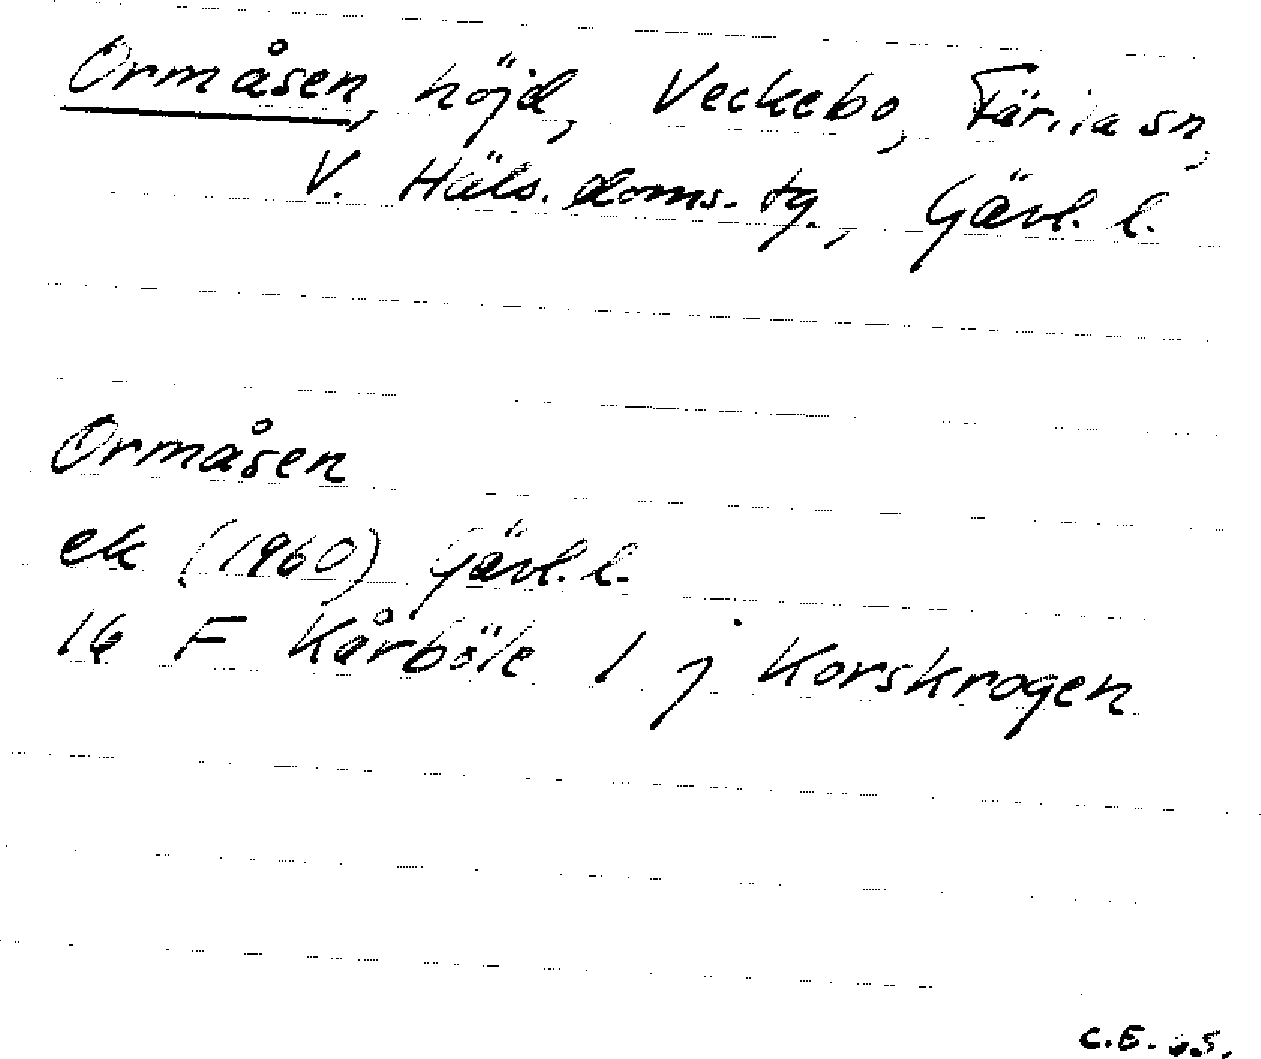 Ormåsen, höjd, Veckebo, Färila sn,
V. Häls. doms. tg., Gävl. l.
Ormåsen
ek (1960) Gävl. l.
16 F Kårböle 1 j Korskrogen
C.E.